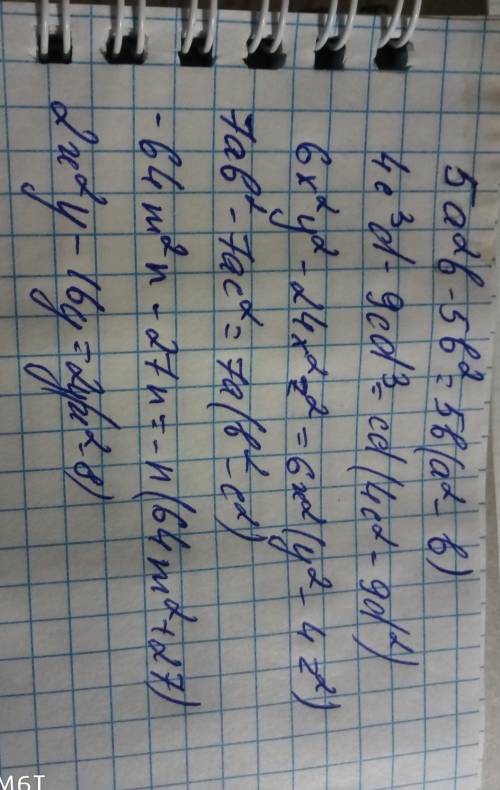 5a²b - 5b² = 5b(a² - b)
4c³d - 9cd³ = cd(4c² - 9d²)
6x²y² - 24x²z² = 6x²(y² - 4z²)
7ab² - 7ac² = 7a(b² - c²)
- 64m²n - 27n = -n(64m² + 27)
2x²y - 16y = 2y(x² - 8)
M6T